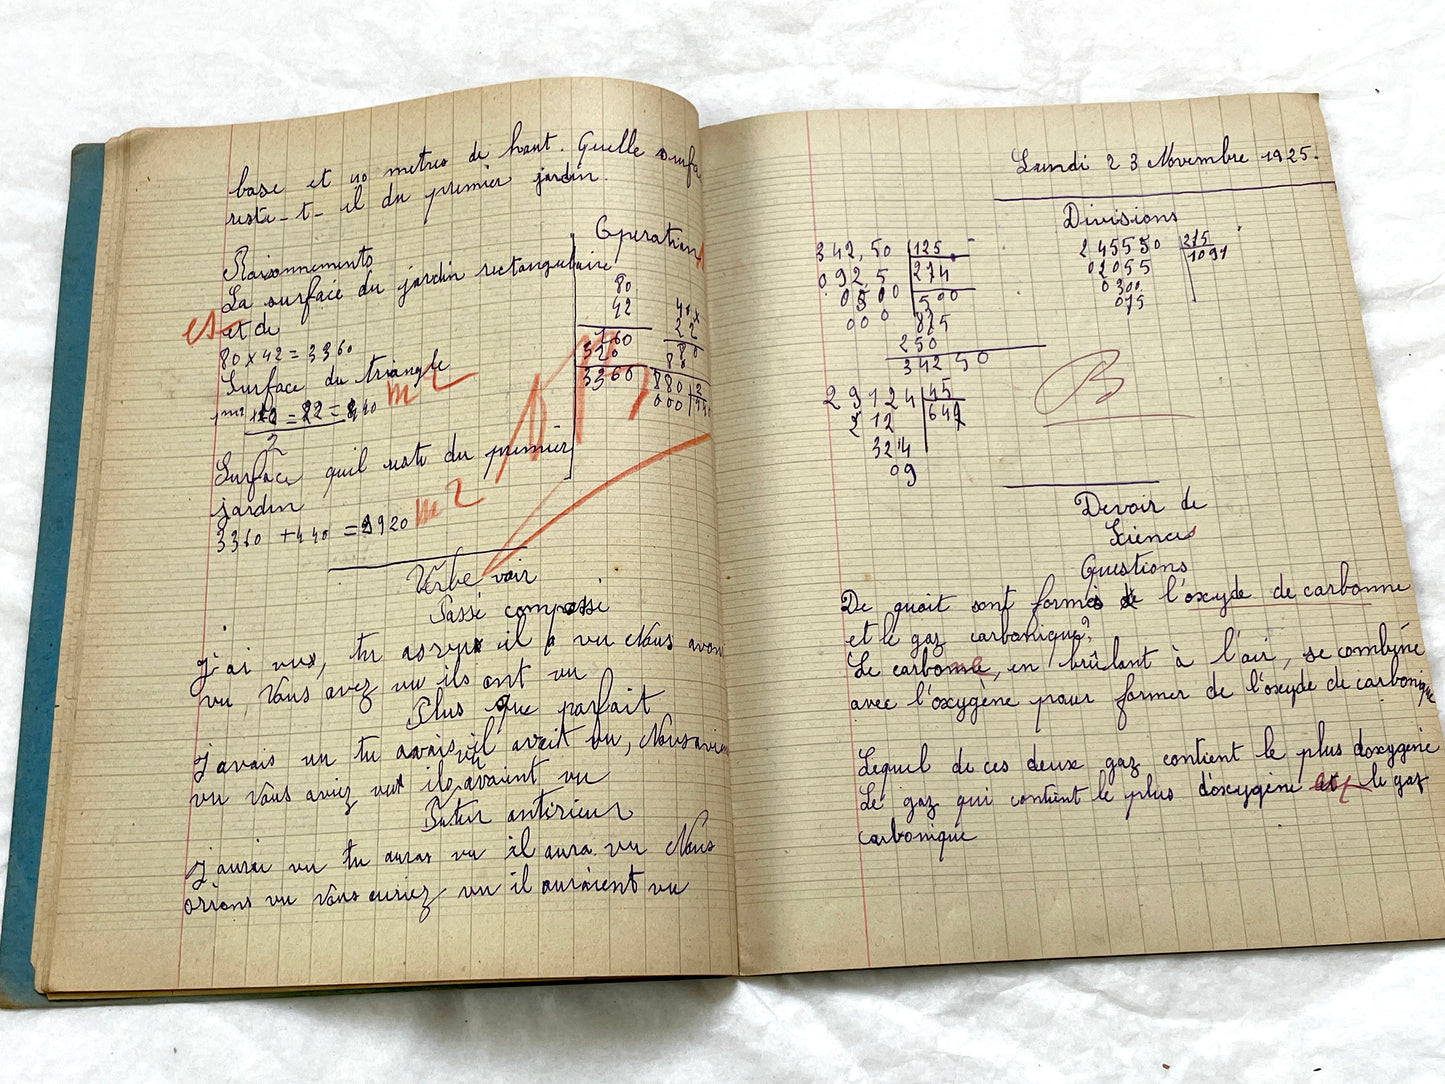 base et 40 metres de haut. Quelle surfa
reste-t-il du premier jardin.
Operations
Raisonnements
La surface du jardin rectangulaire
est de
80 x 42 = 3360
Surface du triangle
= 22 = 440 m2
2
Surface quil reste du premier
jardin
3360 + 440 = 2920 m2
80
42
160
320
3360
22
80
88
880 2
000
Verbe voir
Passé composé
J'ai vu, tu as vu il a vu Nous avons
vu, Vous avez vu ils ont vu
Plus que parfait
J'avais vu tu avais vu il avait vu, Nous avie
vu Vous aviez vu ils avaint vu
Futur antérieur
J'aurai vu tu auras vu il aura vu Nous
orions vu Vous auriez vu il auraient vu
Lundi 23 Novembre 1925.
Divisions
342,50 125
0925 274
0500 500
000 875
250
34250
245550 225
02055 1091
0300
075
B
29124 45
212 647
324
09
Devoir de
Siences
Questions
De quoit sont formés de l'oxyde de carbonne
et le gaz carbonique?
Le carbone, en brûlant à l'air, se combine
avec l'oxygène pour former de l'oxyde de carbonique
Lequel de ces deux gaz contient le plus doxygène
Le gaz qui contient le plus d'oxygène est le gaz
carbonique